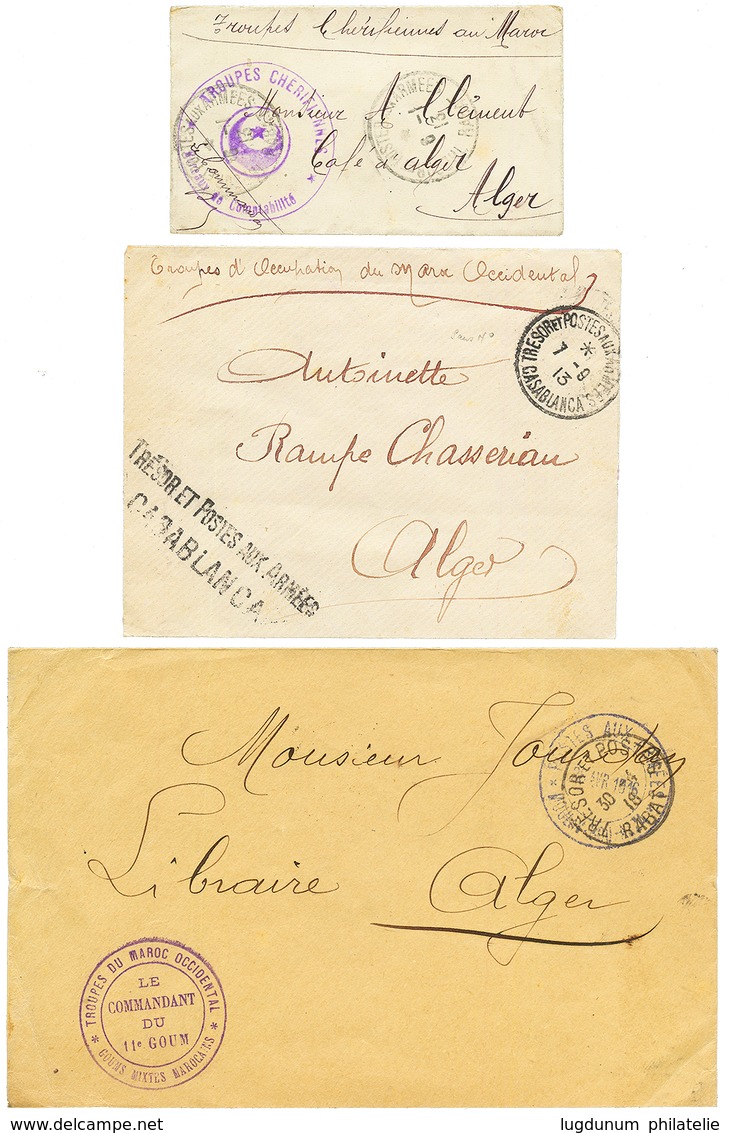 Troupes Chérifiennes au Maroc
TROUPES CHÉRIFIENNES
de Comptabilité
Monsieur A. Clément
Café d'alger
Alger
Troupes d'Occupation du Maroc Occidental
Sans N°
TRESOR ET POSTES AUX ARMEES
* 
7 -9
13
CASABLANCA
Antoinette
Rampe Chasseriau
Alger
TRÉSOR ET POSTES AUX ARMÉES
CASABLANCA
Monsieur Jourdan
Libraire Alger
TRESOR ET POSTES
30
RABAT
* TROUPES DU MAROC OCCIDENTAL *
LE
COMMANDANT
DU
11e GOUM
GOUMS MIXTES MAROCAINS
delcampe.net
lugdunum philatelie